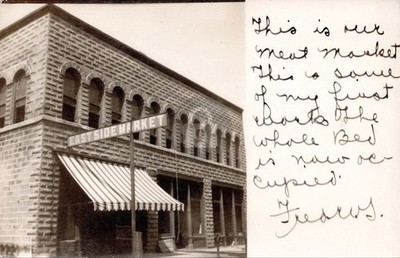 MARKET
This is our
Meat Market
This is some
of my first
works The
whole Bed
is now oc-
cupied.